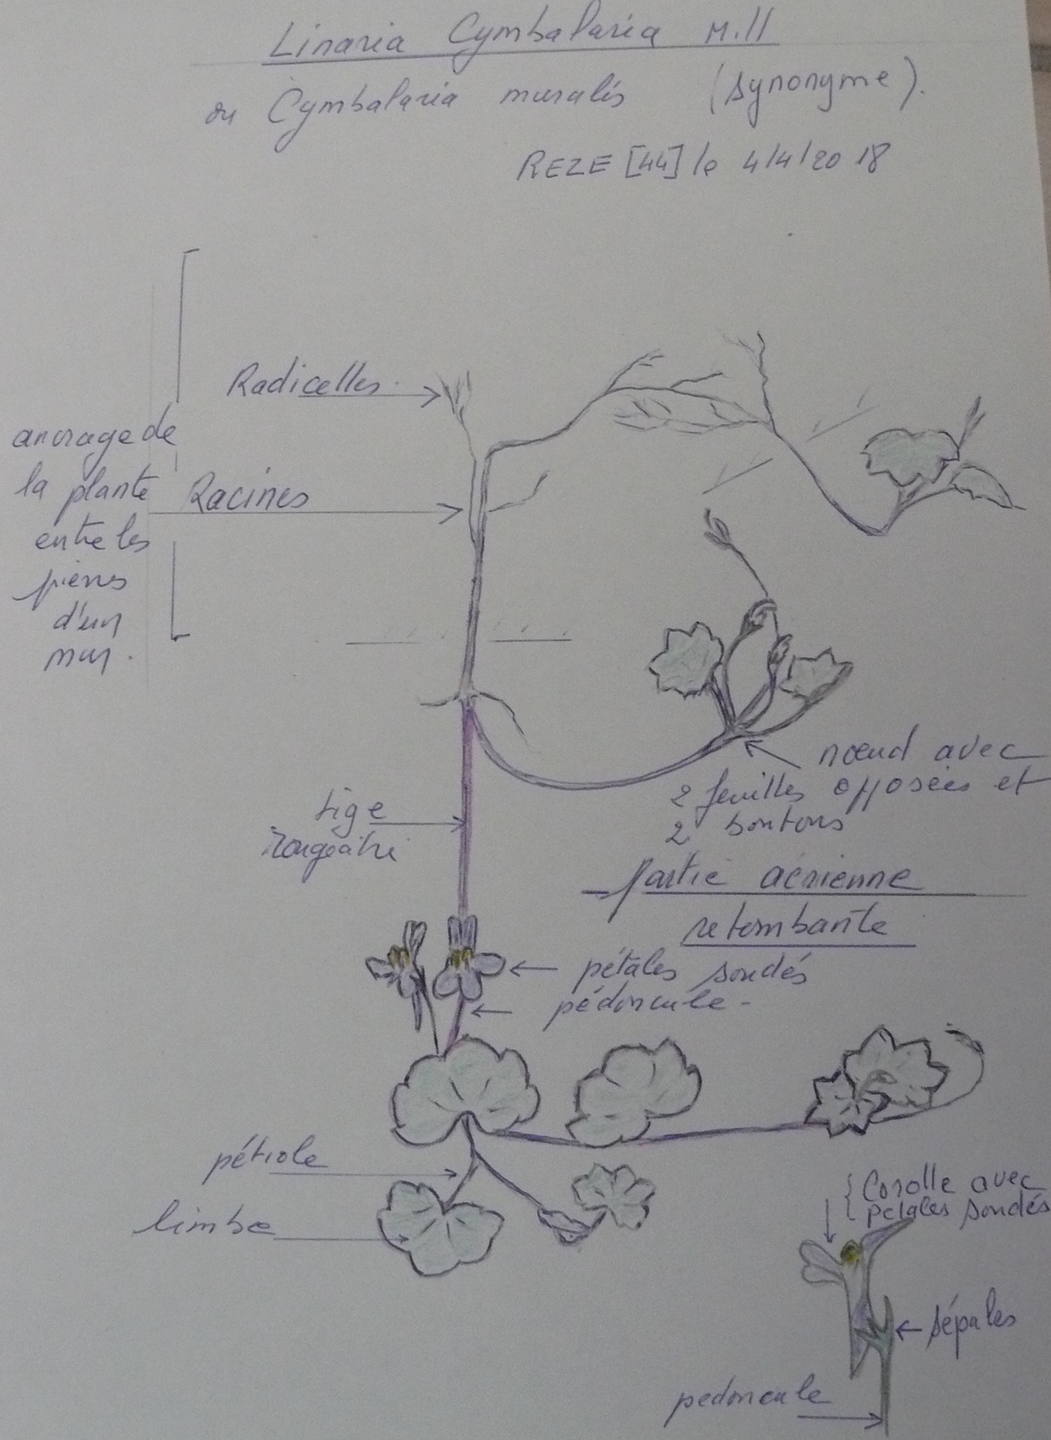 Linaria Cymbalaria Mill
ou Cymbalaria muralis (synonyme).
REZE [44] le 4/4/2018
Radicelles.
ancrage de
la plante
entre les
pierres
d'un
mur.
Racines
nœud avec
2 feuilles opposées et
2 boutons
tige
rougeâtre
partie aérienne
retombante
pétales soudés
pédoncule.
pétiole
limbe
Corolle avec
petales soudés
sépales
pedoncule